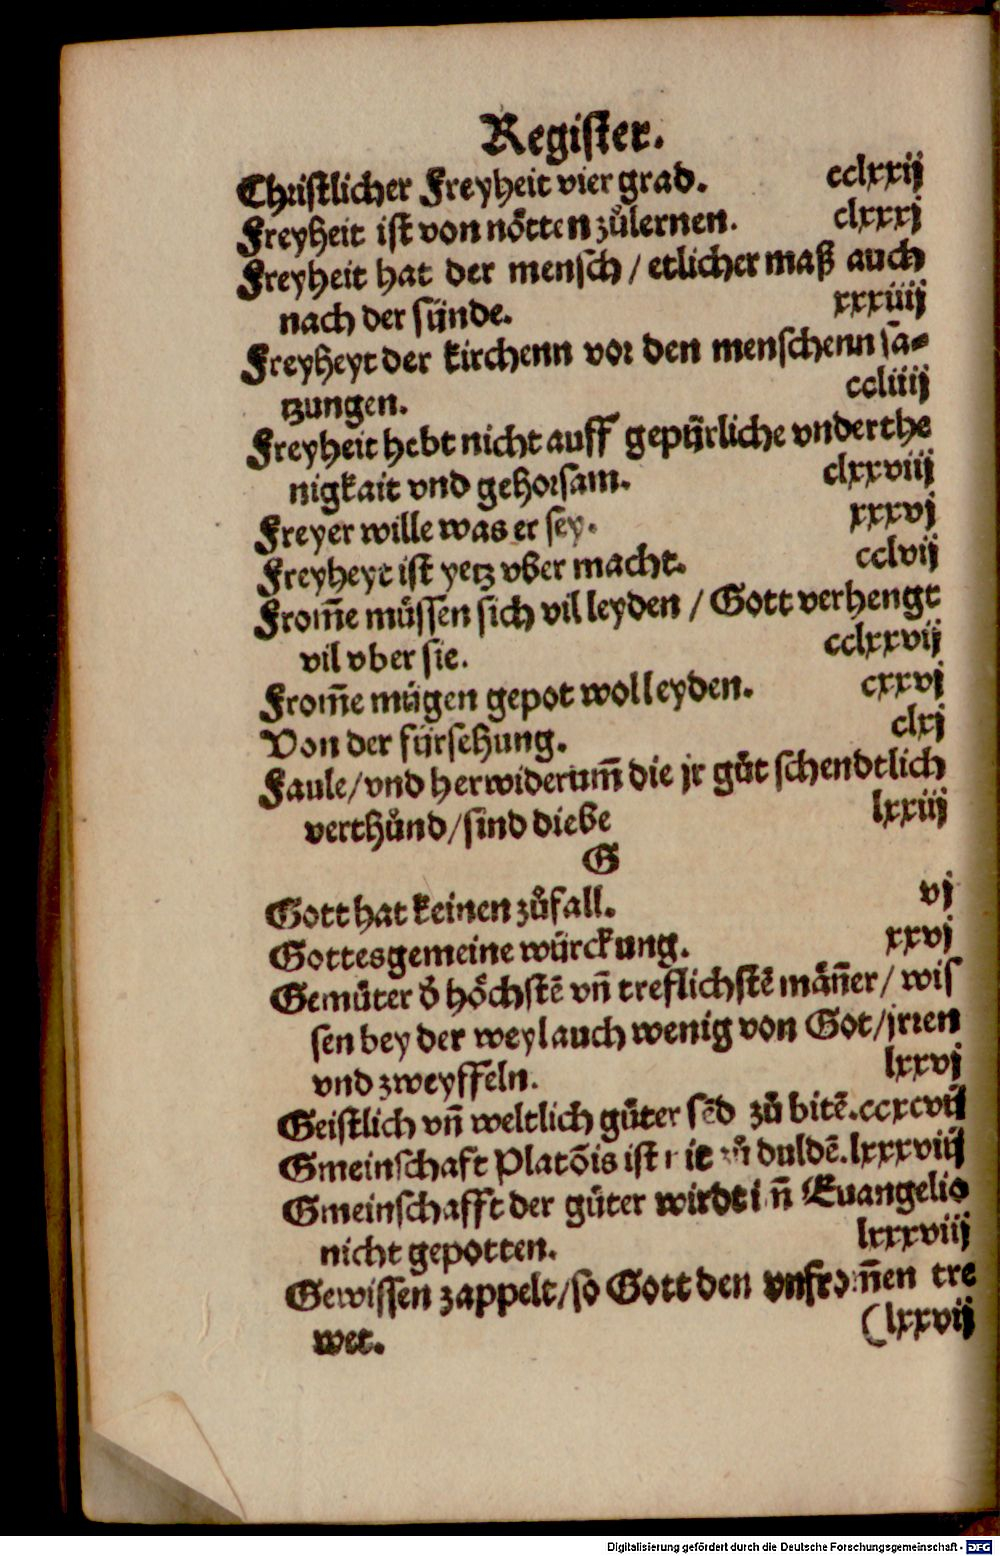 Register.
Christlicher Freyheit vier grad. cclxxij
Freyheit ist von nötten zůlernen. clxxxj
Freyheit hat der mensch / etlicher maß auch
nach der sünde. xxxiiij
Freyheyt der kirchenn vor den menschenn sa-
tzungen. ccliiij
Freyheit hebt nicht auff gepürliche vnderthe
nigkait vnd gehorsam. clxxviij
Freyer wille was er sey. xxxvj
Freyheyt ist yetz vber macht. cclvij
From̃e müssen sich vil leyden / Gott verhengt
vil vber sie. cclxxvij
From̃e mügen gepot wol leyden. cxxvj
Von der fürsehung. clxj
Faule/vnd herwiderum̃ die jr gůt schendtlich
verthůnd/sind diebe lxxiij
G
Gott hat keinen zůfall. vj
Gottes gemeine würckung. xxvj
Gemüter d̕ höchstẽ vñ treflichstẽ mäñer/ wis
sen bey der weyl auch wenig von Got/jrren
vnd zweyffeln. lxxvj
Geistlich vñ weltlich güter sẽd zů bitẽ. ccxcvij
Gmeinschaft Platõis ist nit zů duldẽ. lxxxviij
Gmeinschafft der güter wirdt iñ Euangelio
nicht gepotten. lxxxviij
Gewissen zappelt/so Gott den vnfrom̃en tre
wet. (lxxvij
Digitalisierung gefördert durch die Deutsche Forschungsgemeinschaft - DFG